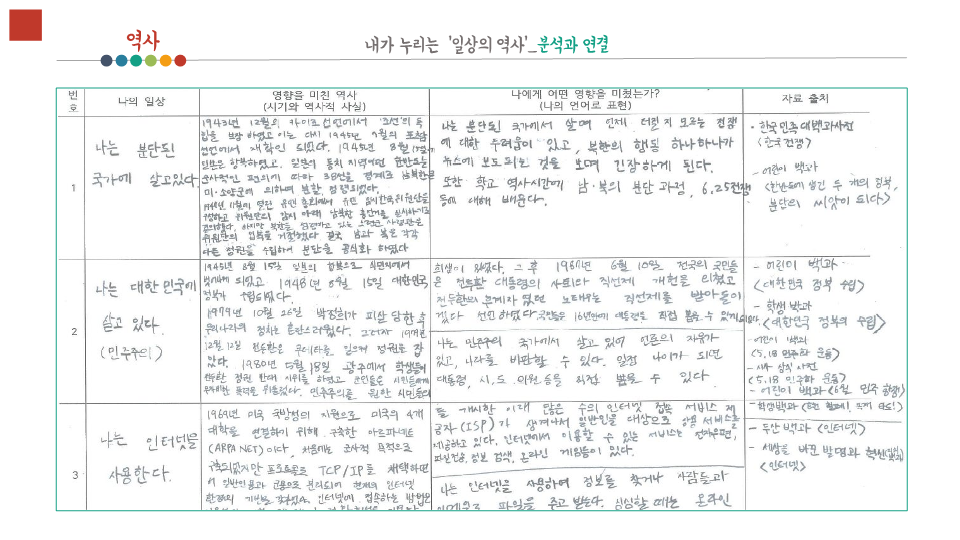 역사
내가 누리는 '일상의 역사'_분석과 연결
번호
나의 일상
영향을 미친 역사
(시기와 역사적 사실)
나에게 어떤 영향을 미쳤는가?
(나의 언어로 표현)
자료 출처
1
나는 분단된
국가에 살고있다.
1943년 12월의 카이로 선언에서 조선의 독
립을 보장 하였고 이는 다시 1945년 7월의 포츠담
선언에서 재확인 되었다. 1945년 8월 15일
일본은 항복하였고, 일본의 통치 지역이던 한반도는
군사적인 편의에 따라 38선을 경계로 남북한으로
미·소양군에 의하여 분할 점령되었다.
나는 분단된 국가에서 살며 언제 터질지 모르는 전쟁
에 대한 두려움이 있고, 북한의 행동 하나하나가
뉴스에 보도되는 것을 보며 긴장하게 된다.
또한 학교 역사시간에 남·북의 분단 과정, 6.25전쟁
등에 대해 배운다.
· 한국민족대백과사전
<한국전쟁>
- 어린이 백과
<한반도에 생긴 두 개의 정부,
분단의 씨앗이 되다>
2
나는 대한민국에
살고 있다.
(민주주의)
1945년 8월 15일 일본의 항복으로 식민지에서
벗어나게 되었고 1948년 8월 15일 대한민국
정부가 수립되었다.
1979년 10월 26일 박정희가 피살 당한 후
우리나라의 정치는 혼란스러웠다. 그러다가 1979년
12월 12일 전두환은 쿠데타를 일으켜 정권을 잡
았다. 1980년 5월 18일 광주에서 학생들이
희생이 있었다. 그 후 1987년 6월 10일 전국의 국민들
은 전두환 대통령의 사퇴와 직선제 개헌을 외쳤고
전두환의 후계자였던 노태우는 직선제를 받아들이
겠다 선언하였다. 국민들은 16년만에 대통령을 직접 뽑을 수 있게 되었다.
나는 민주주의 국가에서 살고 있어 언론의 자유가
있고, 나라를 비판할 수 있다. 일정 나이가 되면
대통령, 시, 도 의원 등을 직접 뽑을 수 있다
- 어린이 백과
<대한민국 정부 수립>
- 학생 백과
<대한민국 정부의 수립>
- 어린이 백과
(5.18 민주화 운동)
- 시사 상식 사전
(5.18 민주화 운동)
- 어린이 백과 <6월 민주 항쟁>
- 학생백과
3
나는 인터넷을
사용한다.
1969년 미국 국방성의 지원으로 미국의 4개
대학을 연결하기 위해 구축한 아르파네트
(ARPANET)이다. 처음에는 군사적 목적으로
구축되었지만 프로토콜로 TCP/IP를 채택하면
서 일반인용과 군용으로 분리되어 현재의 인터넷
환경의 기반을 갖추었다. 인터넷에 접속하는 방법은
를 개시한 이래 많은 수의 인터넷 접속 서비스 제
공자(ISP)가 생겨나서 일반인을 대상으로 상용 서비스를
제공하고 있다. 인터넷에서 이용할 수 있는 서비스는 전자우편,
파일전송, 정보 검색, 온라인 게임등이 있다.
나는 인터넷을 사용하여 정보를 찾거나 사람들과
파일을 주고 받는다. 심심할 때는 온라인
- 두산 백과 <인터넷>
- 세상을 바꾼 발명과 혁신
<인터넷>